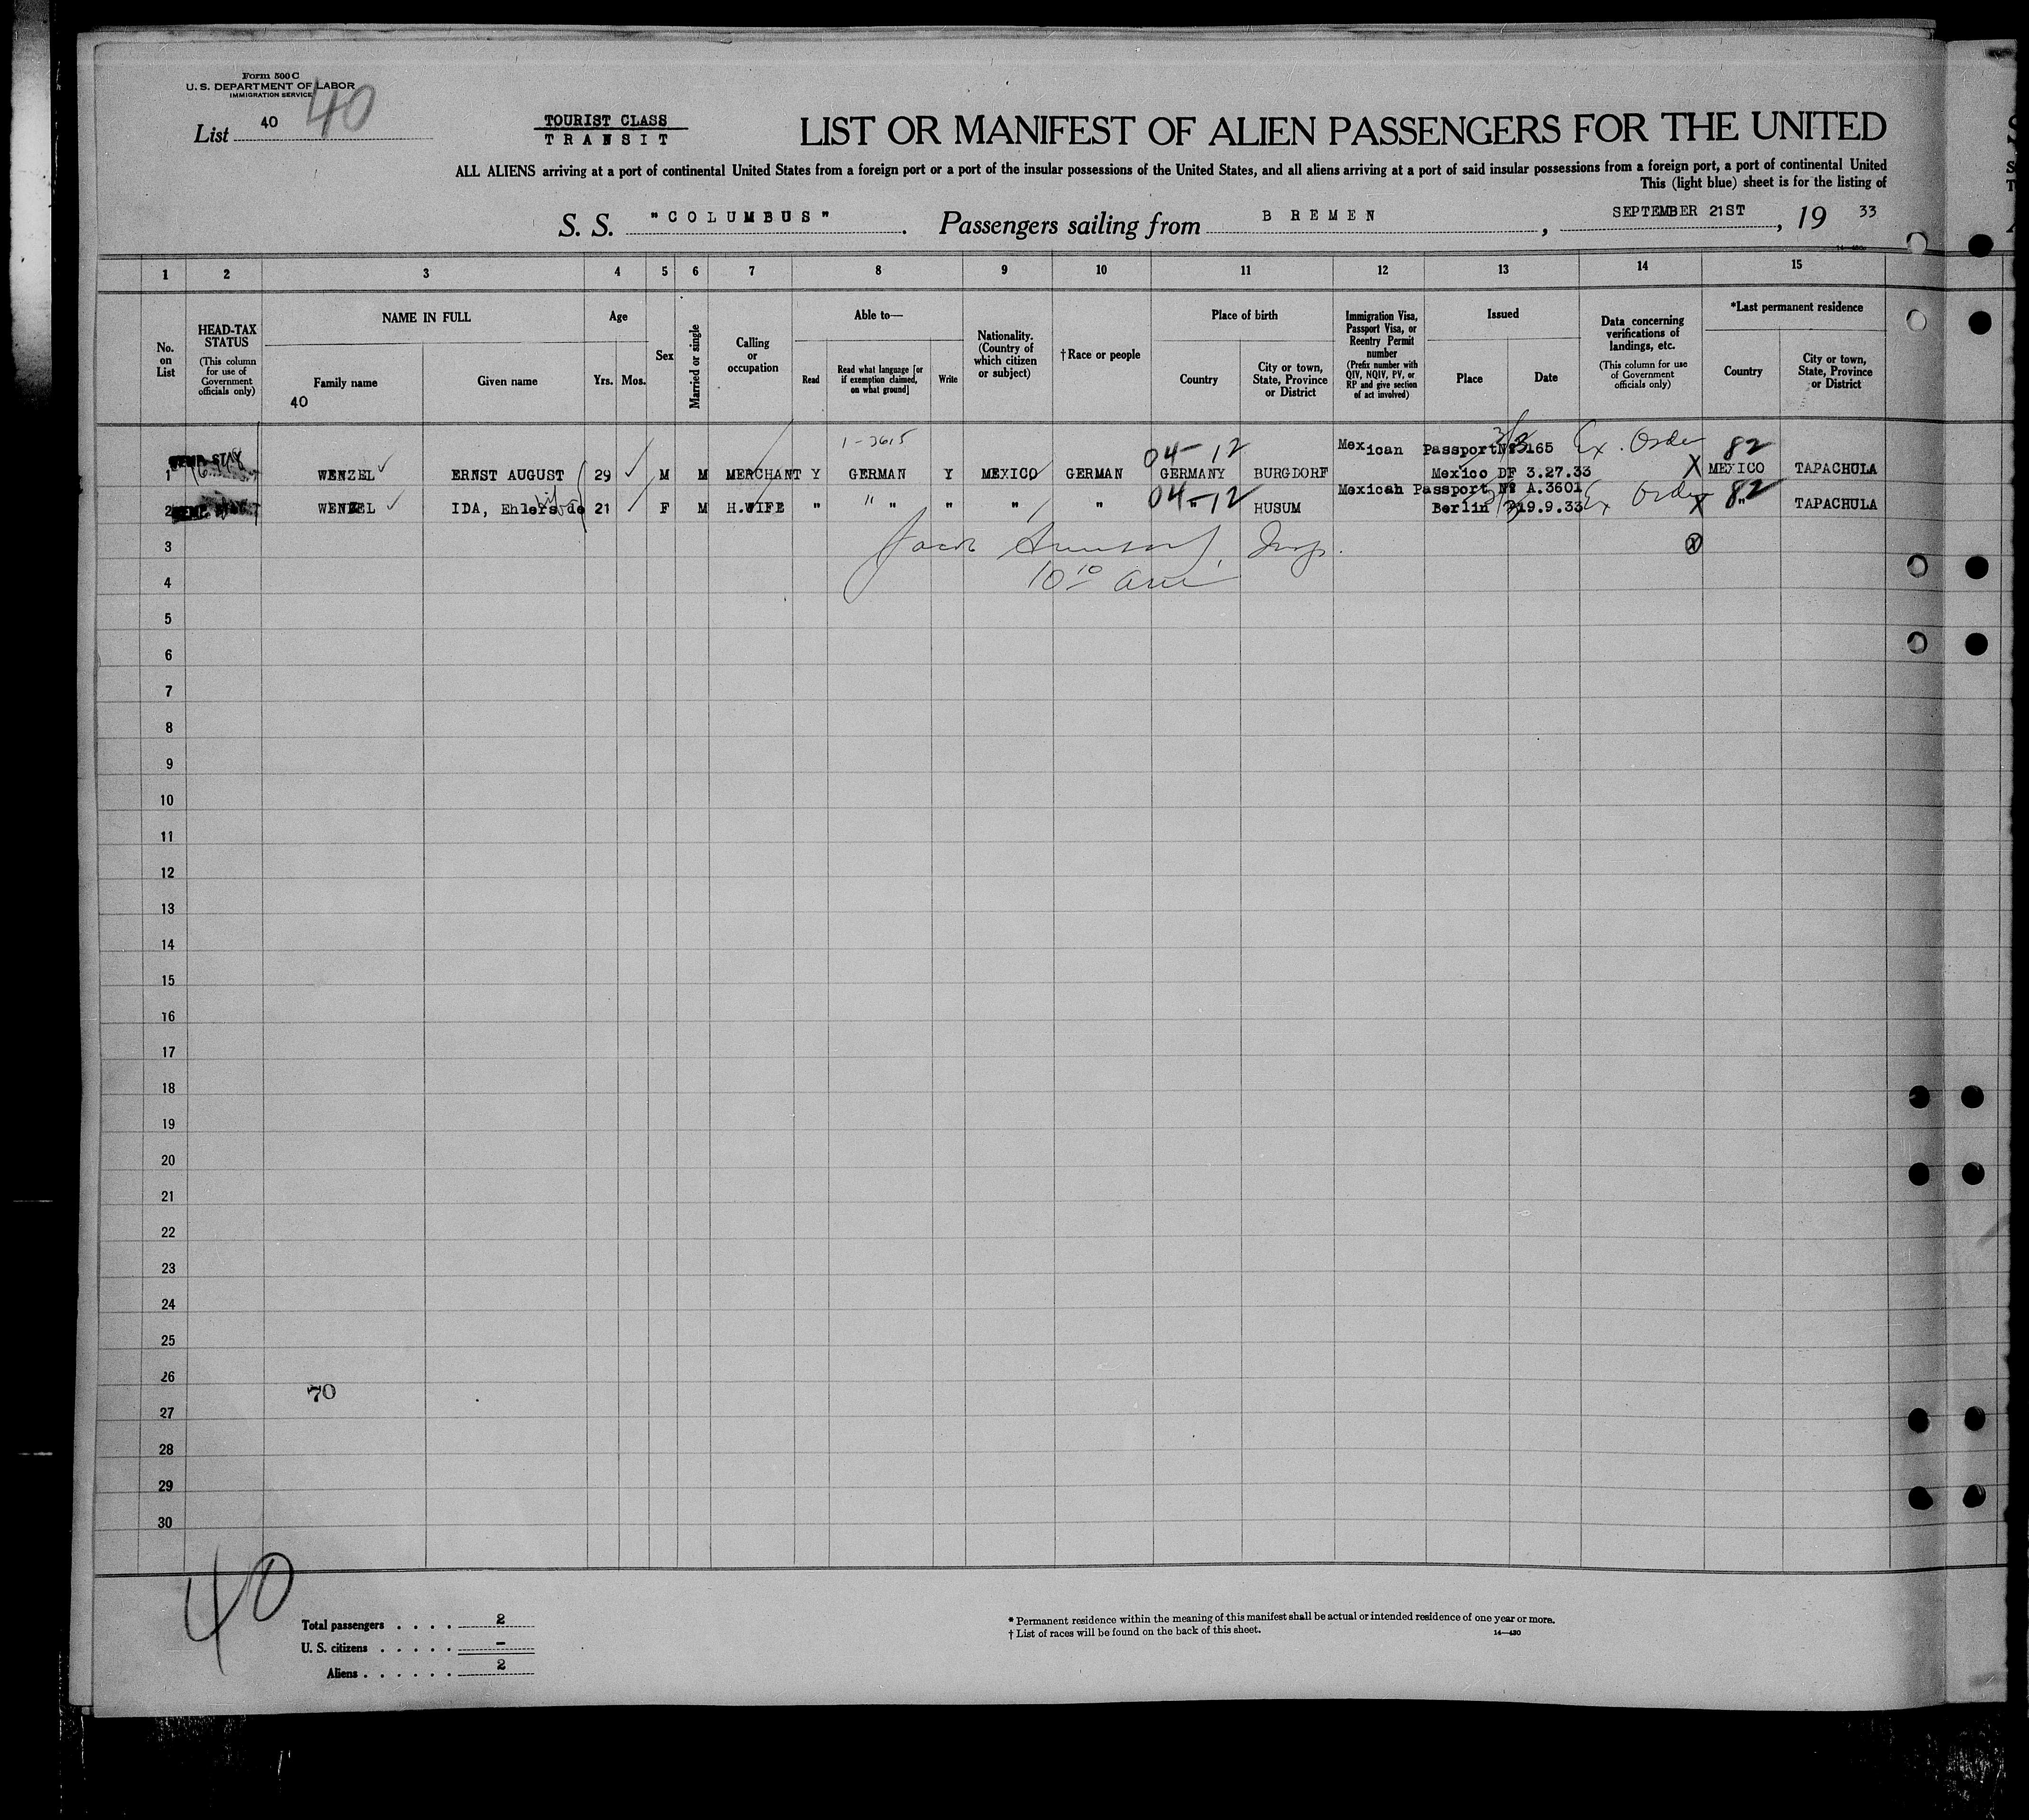 Form 500 C
U. S. DEPARTMENT OF LABOR
IMMIGRATION SERVICE
40
List 40
TOURIST CLASS
TRANSIT
LIST OR MANIFEST OF ALIEN PASSENGERS FOR THE UNITED
ALL ALIENS arriving at a port of continental United States from a foreign port or a port of the insular possessions of the United States, and all aliens arriving at a port of said insular possessions from a foreign port, a port of continental United
This (light blue) sheet is for the listing of
S. S. "COLUMBUS". Passengers sailing from BREMEN, SEPTEMBER 21ST, 19 33
1 2 3 4 5 6 7 8 9 10 11 12 13 14 15
No. on List
HEAD-TAX STATUS
(This column for use of Government officials only)
NAME IN FULL
Family name
Given name
40
Age
Yrs. Mos.
Sex
Married or single
Calling or occupation
Able to—
Read
Read what language [or if exemption claimed, on what ground]
Write
Nationality. (Country of which citizen or subject)
† Race or people
Place of birth
Country
City or town, State, Province or District
Immigration Visa, Passport Visa, or Reentry Permit number
(Prefix number with QIV, NQIV, PV, or RP and give section of act involved)
Issued
Place
Date
Data concerning verifications of landings, etc.
(This column for use of Government officials only)
*Last permanent residence
Country
City or town, State, Province or District
1-3615 04-12 Mexican Passport № 165 Ex. Order 82
1 STAY WENZEL ERNST AUGUST 29 M M MERCHANT Y GERMAN Y MEXICO GERMAN GERMANY BURGDORF Mexico DF 3.27.33 X MEXICO TAPACHULA
04-12 Mexican Passport № A.3601 Ex Order 82
2 WENZEL IDA, Ehlers de 21 F M H.WIFE " " " " " " " HUSUM Berlin 19.9.33 X " TAPACHULA
3 Jacob Insp. X
4 10 10
5
6
7
8
9
10
11
12
13
14
15
16
17
18
19
20
21
22
23
24
25
26
70
27
28
29
30
40
Total passengers . . . . 2
U. S. citizens . . . . . —
Aliens . . . . . . 2
* Permanent residence within the meaning of this manifest shall be actual or intended residence of one year or more.
† List of races will be found on the back of this sheet.
14—430